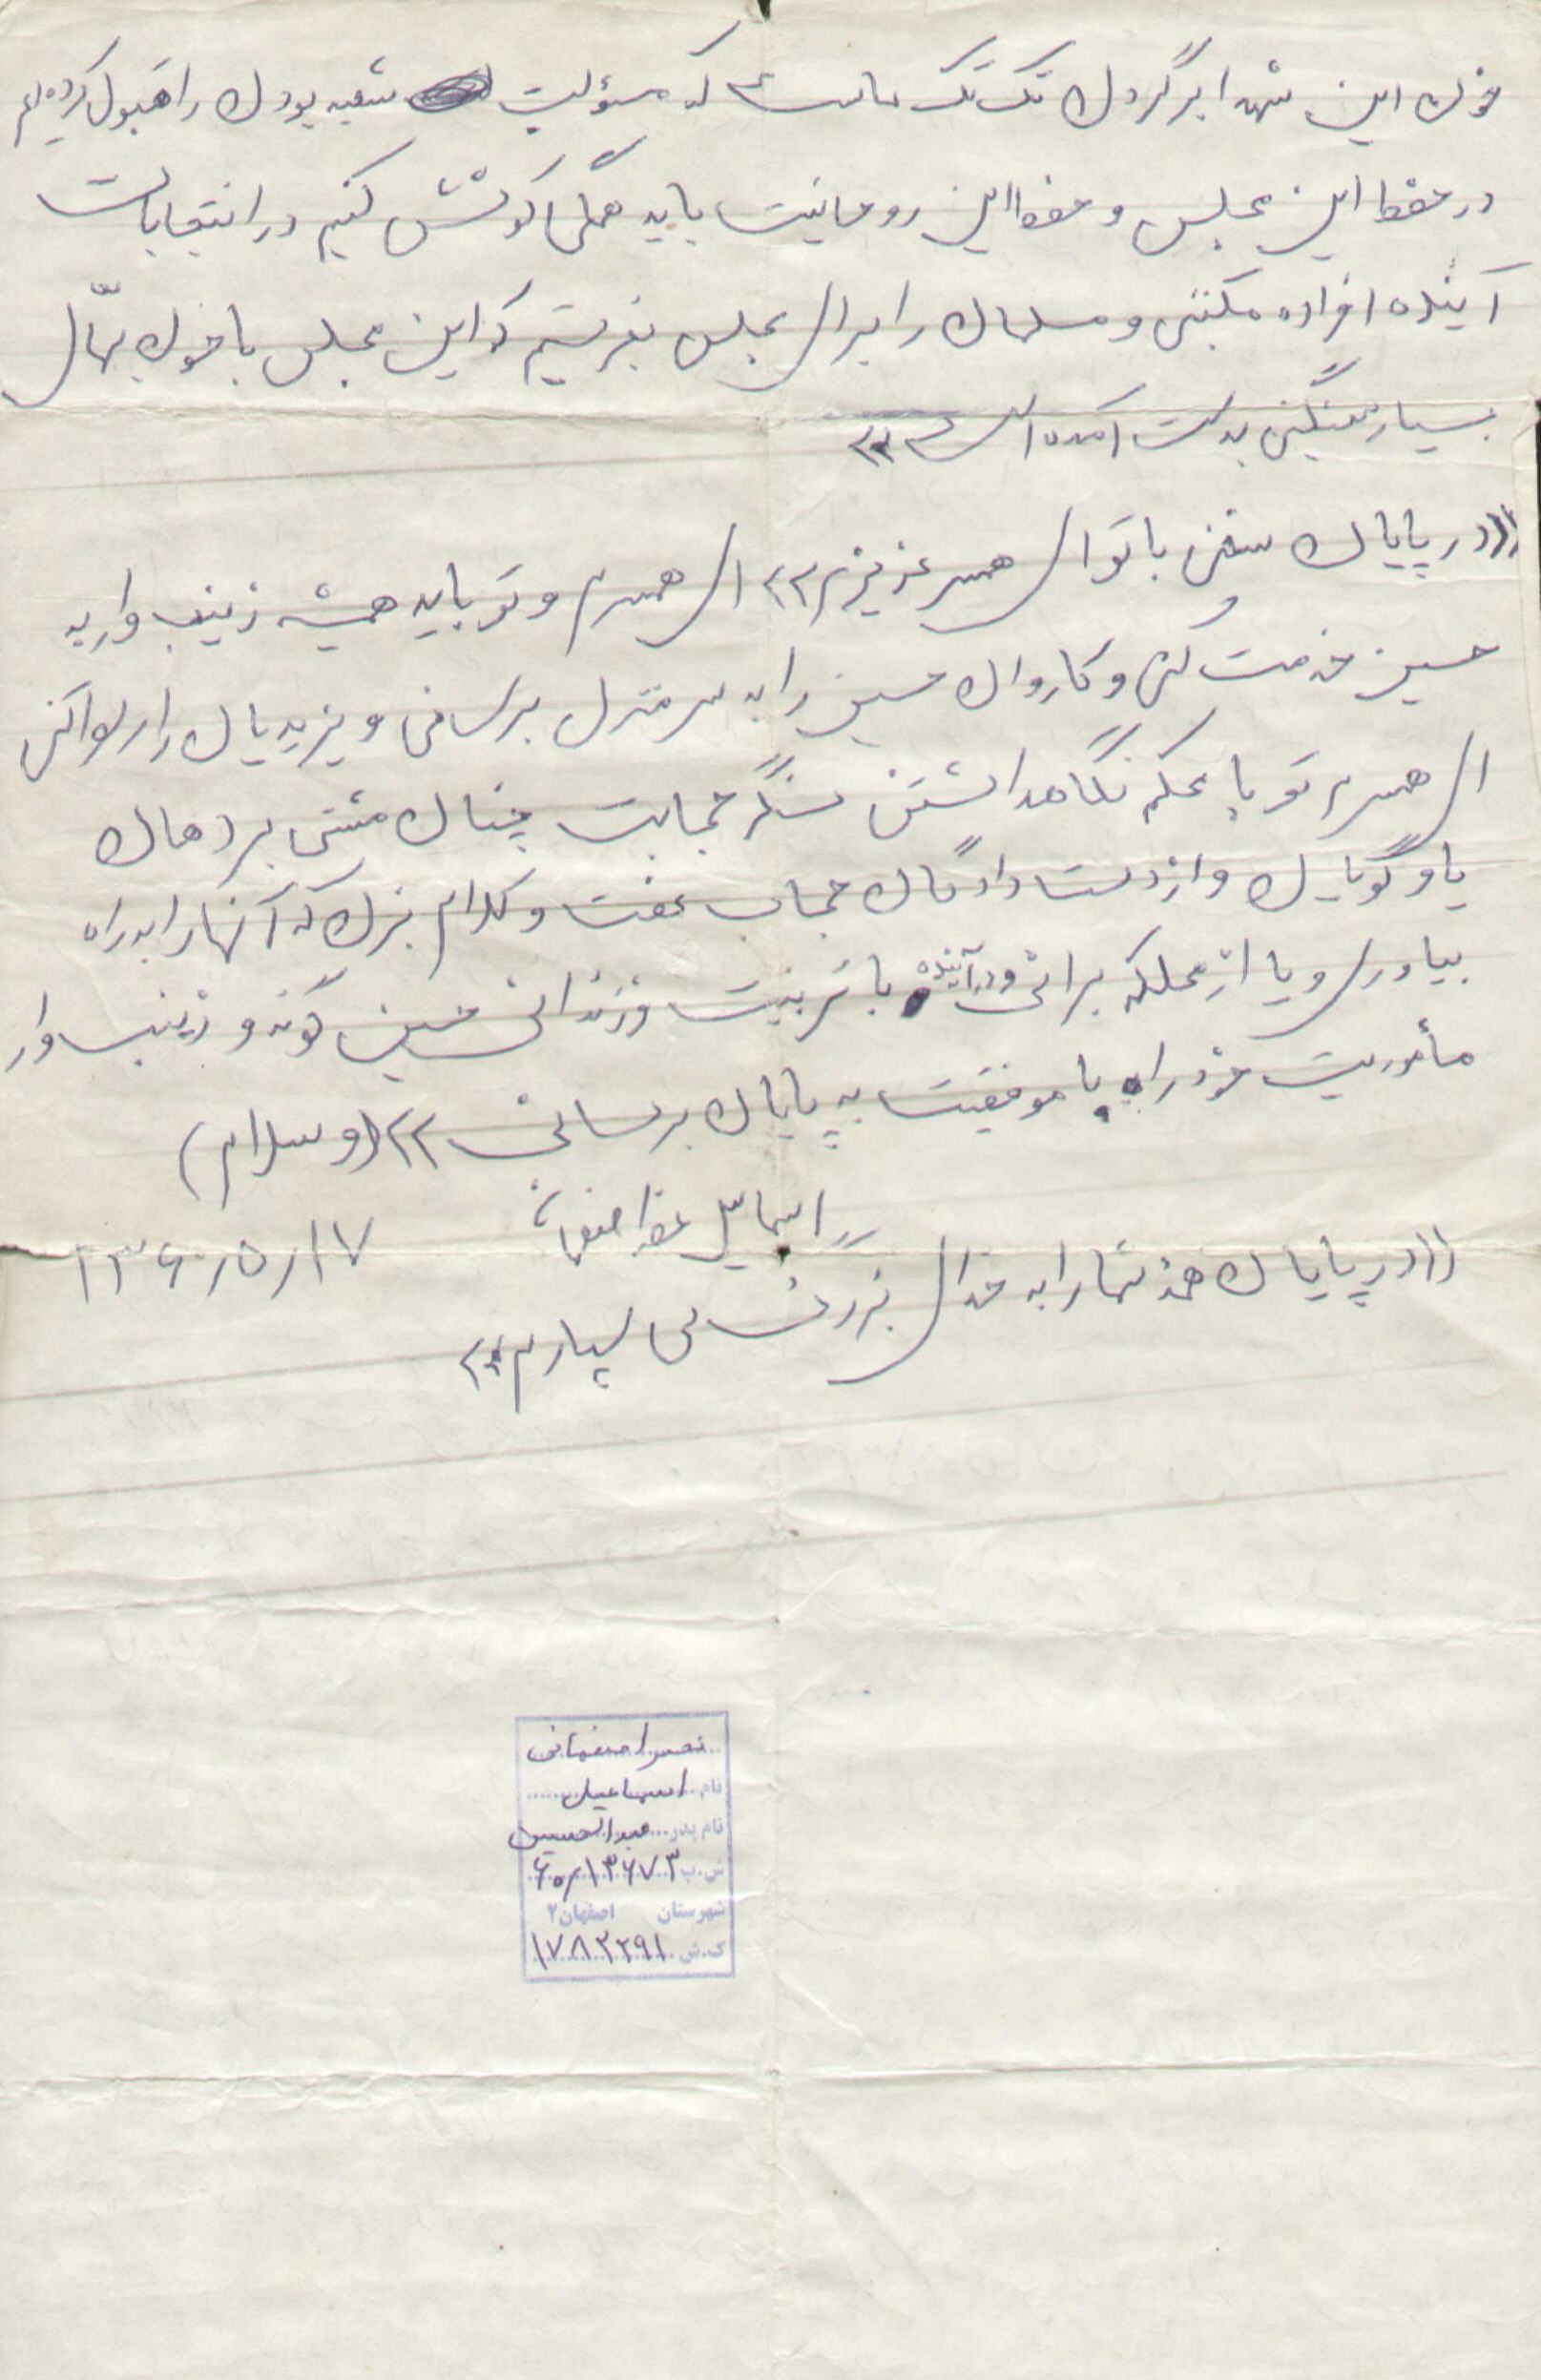 خون این شهدا بر گردن تک تک ماست که مسؤلیت شیعه بودن را قبول کرده‌ایم
در حفظ این مجلس و حفظ این روحانیت باید همگی کوشش کنیم در انتخابات
آینده افراده مکتبی و مسلمان را برای مجلس بفرستیم که این مجلس با خون بهای
بسیار سنگین بدست آمده است»
«در پایان سخنی با تو ای همسر عزیزم» ای همسرم و تو باید همیشه زینب وار به
حسین خدمت کنی و کاروان حسین را به سر منزل برسانی و یزیدیان را رسوا کنی
ای همسرم تو با محکم نگاهداشتن سنگر حجابت چنان مشتی بر دهان
یاوگویان و از دست دادگان حجاب عفت و کلام بزن که آنها را به راه
بیاوری و یا از مملکه برانی و در آینده با تربیت فرزندانی حسین گونه و زینب وار
مأموریت خود را با موفقیت به پایان برسانی» (وسلام)
اسماعیل نصراصفهانی
۱۳۶۰/۵/۱۷
«در پایان همه شما را به خدای بزرگ می سپارم»
نصراصفهانی
نام اسماعیل
نام پدر عبدالحسین
ش.پ ۶۰/۱۳۶۷۳
شهرستان اصفهان ۲
ک.ش ۱۷۸۲۲۹۱